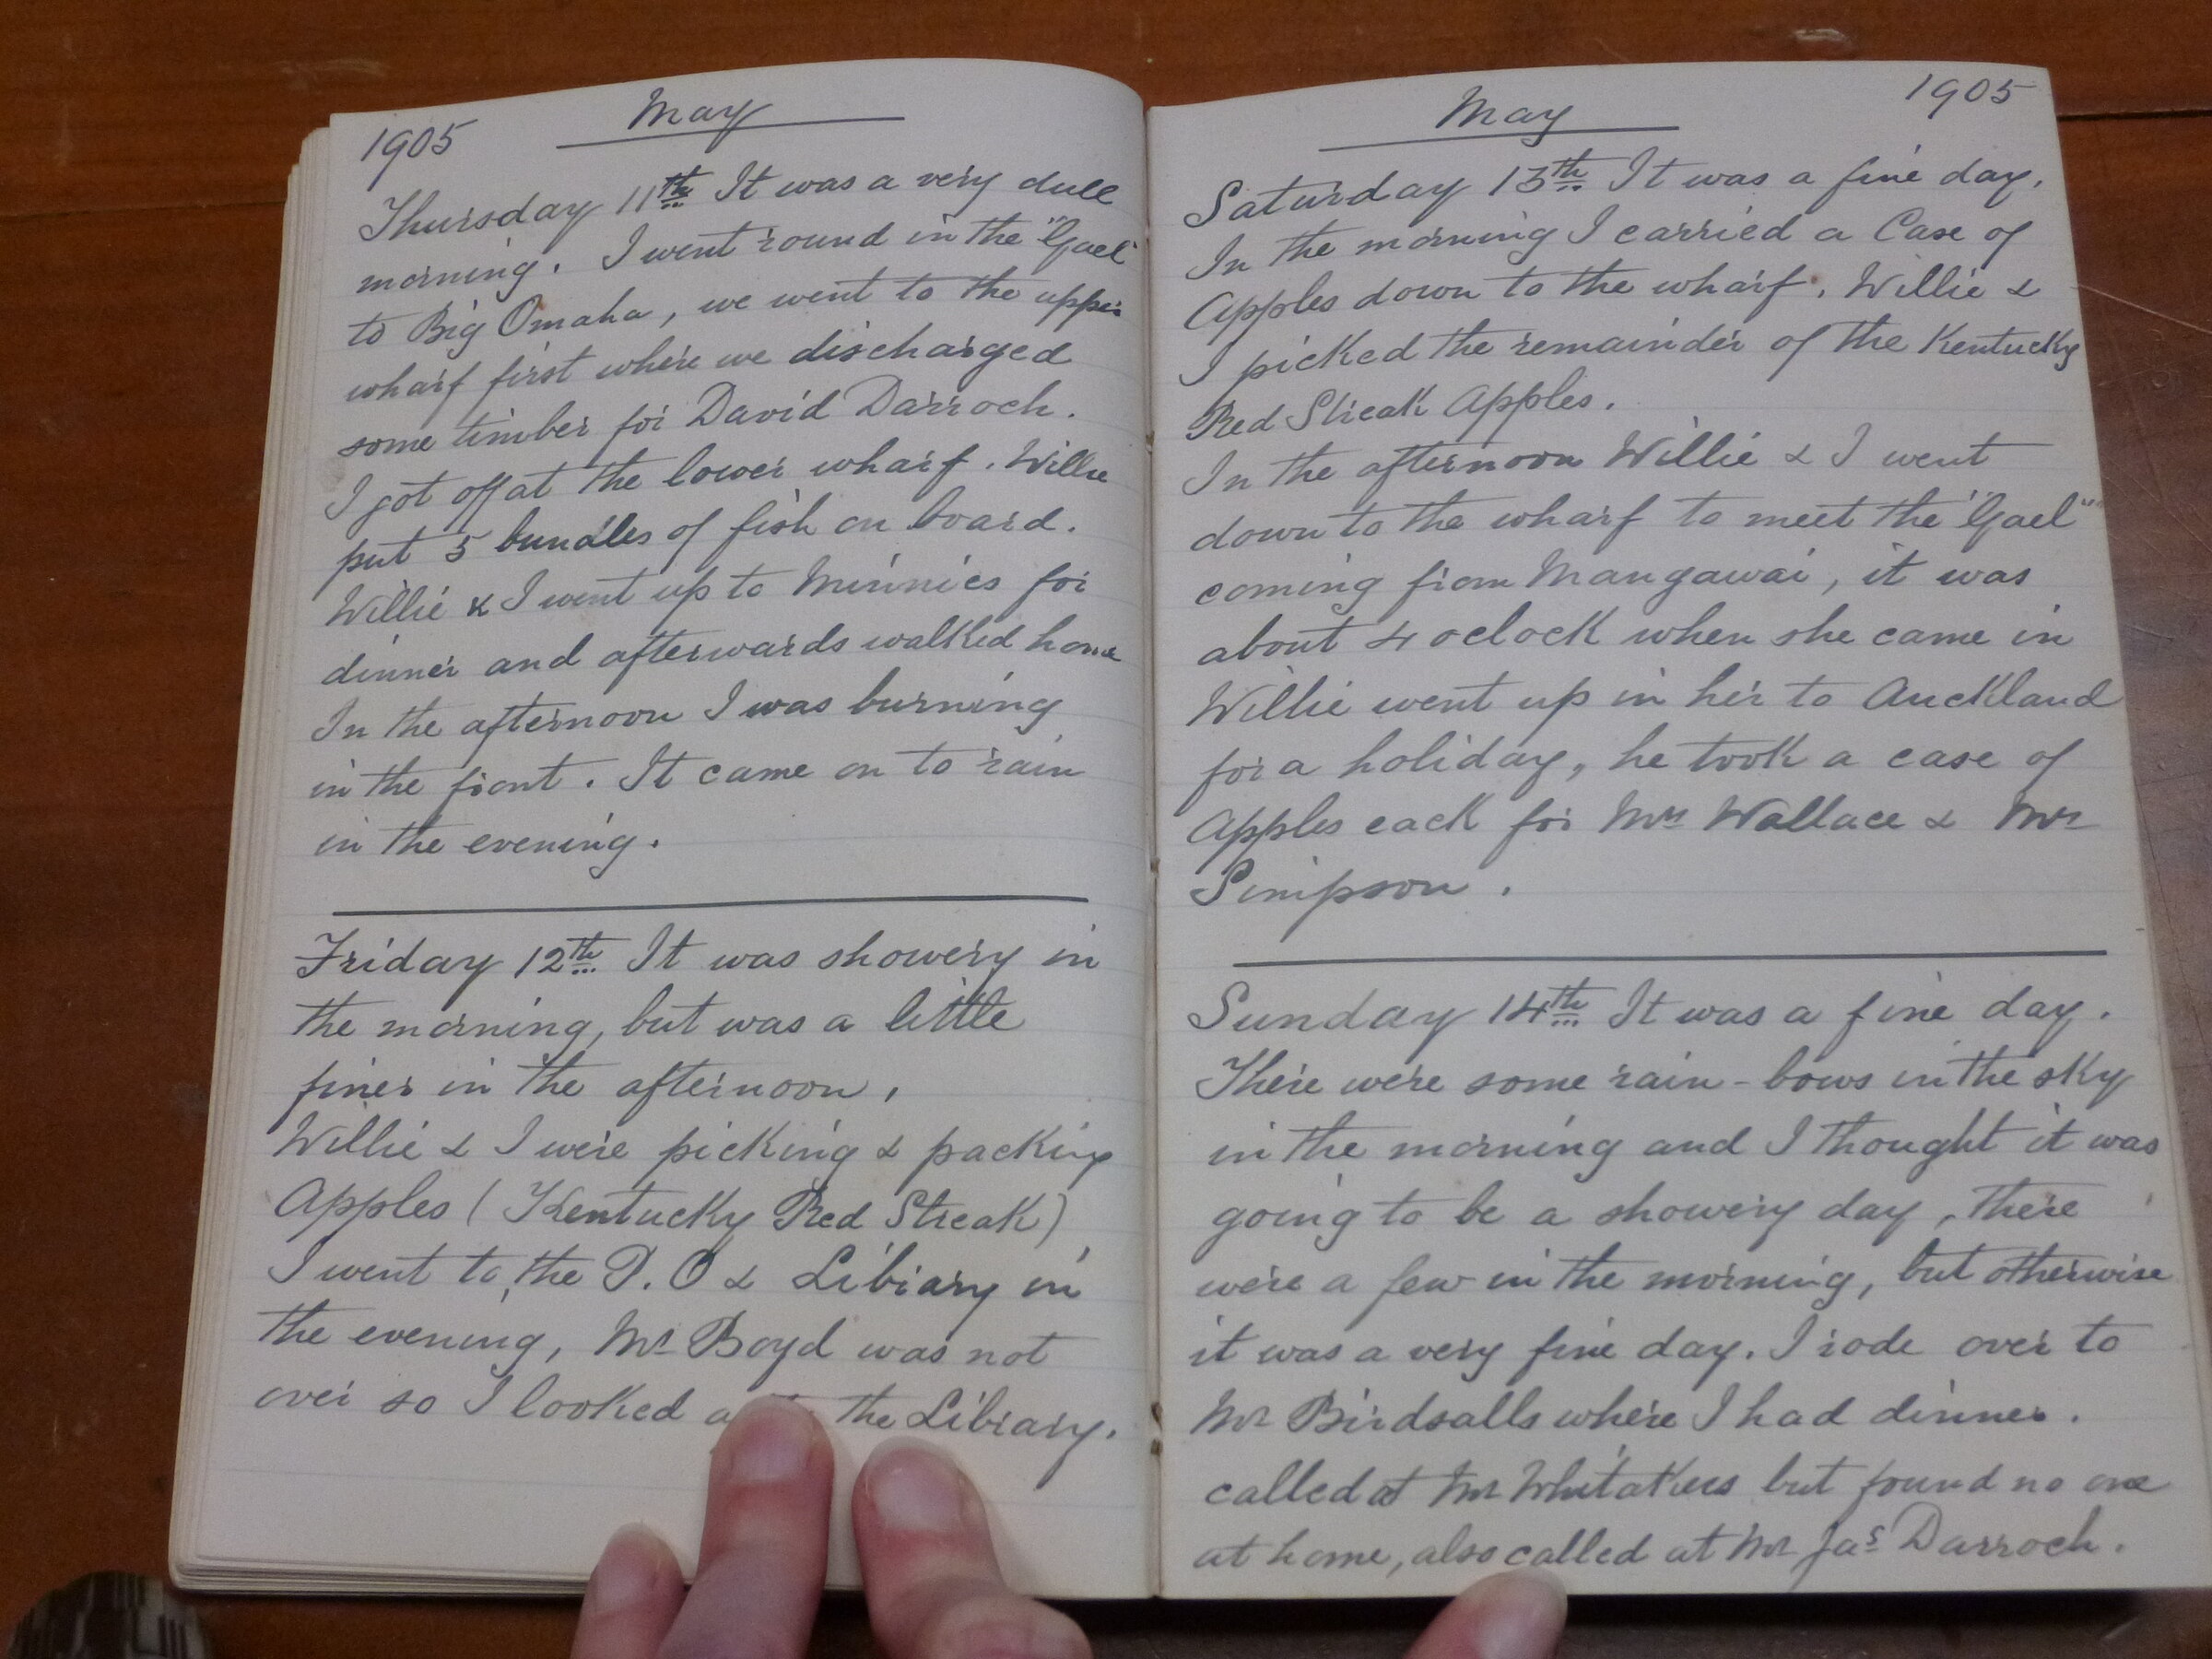 1905 May
Thursday 11th It was a very dull
morning. I went round in the "Gael"
to Big Omaha, we went to the upper
wharf first where we discharged
some timber for David Darroch.
I got off at the lower wharf. Willie
put 5 bundles of fish on board.
Willie & I went up to Minnies for
dinner and afterwards walked home
In the afternoon I was burning
in the front. It came on to rain
in the evening.
Friday 12th It was showery in
the morning, but was a little
finer in the afternoon,
Willie & I were picking & packing
Apples (Kentucky Red Streak)
I went to, the P.O & Library in
the evening, Mr Boyd was not
over so I looked the Library.
May 1905
Saturday 13th It was a fine day.
In the morning I carried a Case of
Apples down to the wharf. Willie &
I picked the remainder of the Kentucky
Red Streak Apples.
In the afternoon Willie & I went
down to the wharf to meet the "Gael"
coming from Mangawai, it was
about 4 oclock when she came in
Willie went up in her to Auckland
for a holiday, he took a case of
Apples each for Mrs Wallace & Mr
Simpson.
Sunday 14th It was a fine day.
There were some rain-bows in the sky
in the morning and I thought it was
going to be a showery day, there
were a few in the morning, but otherwise
it was a very fine day. I rode over to
Mr Birdsalls where I had dinner.
called at Mr Whitakers but found no one
at home, also called at Mr Jas Darroch.